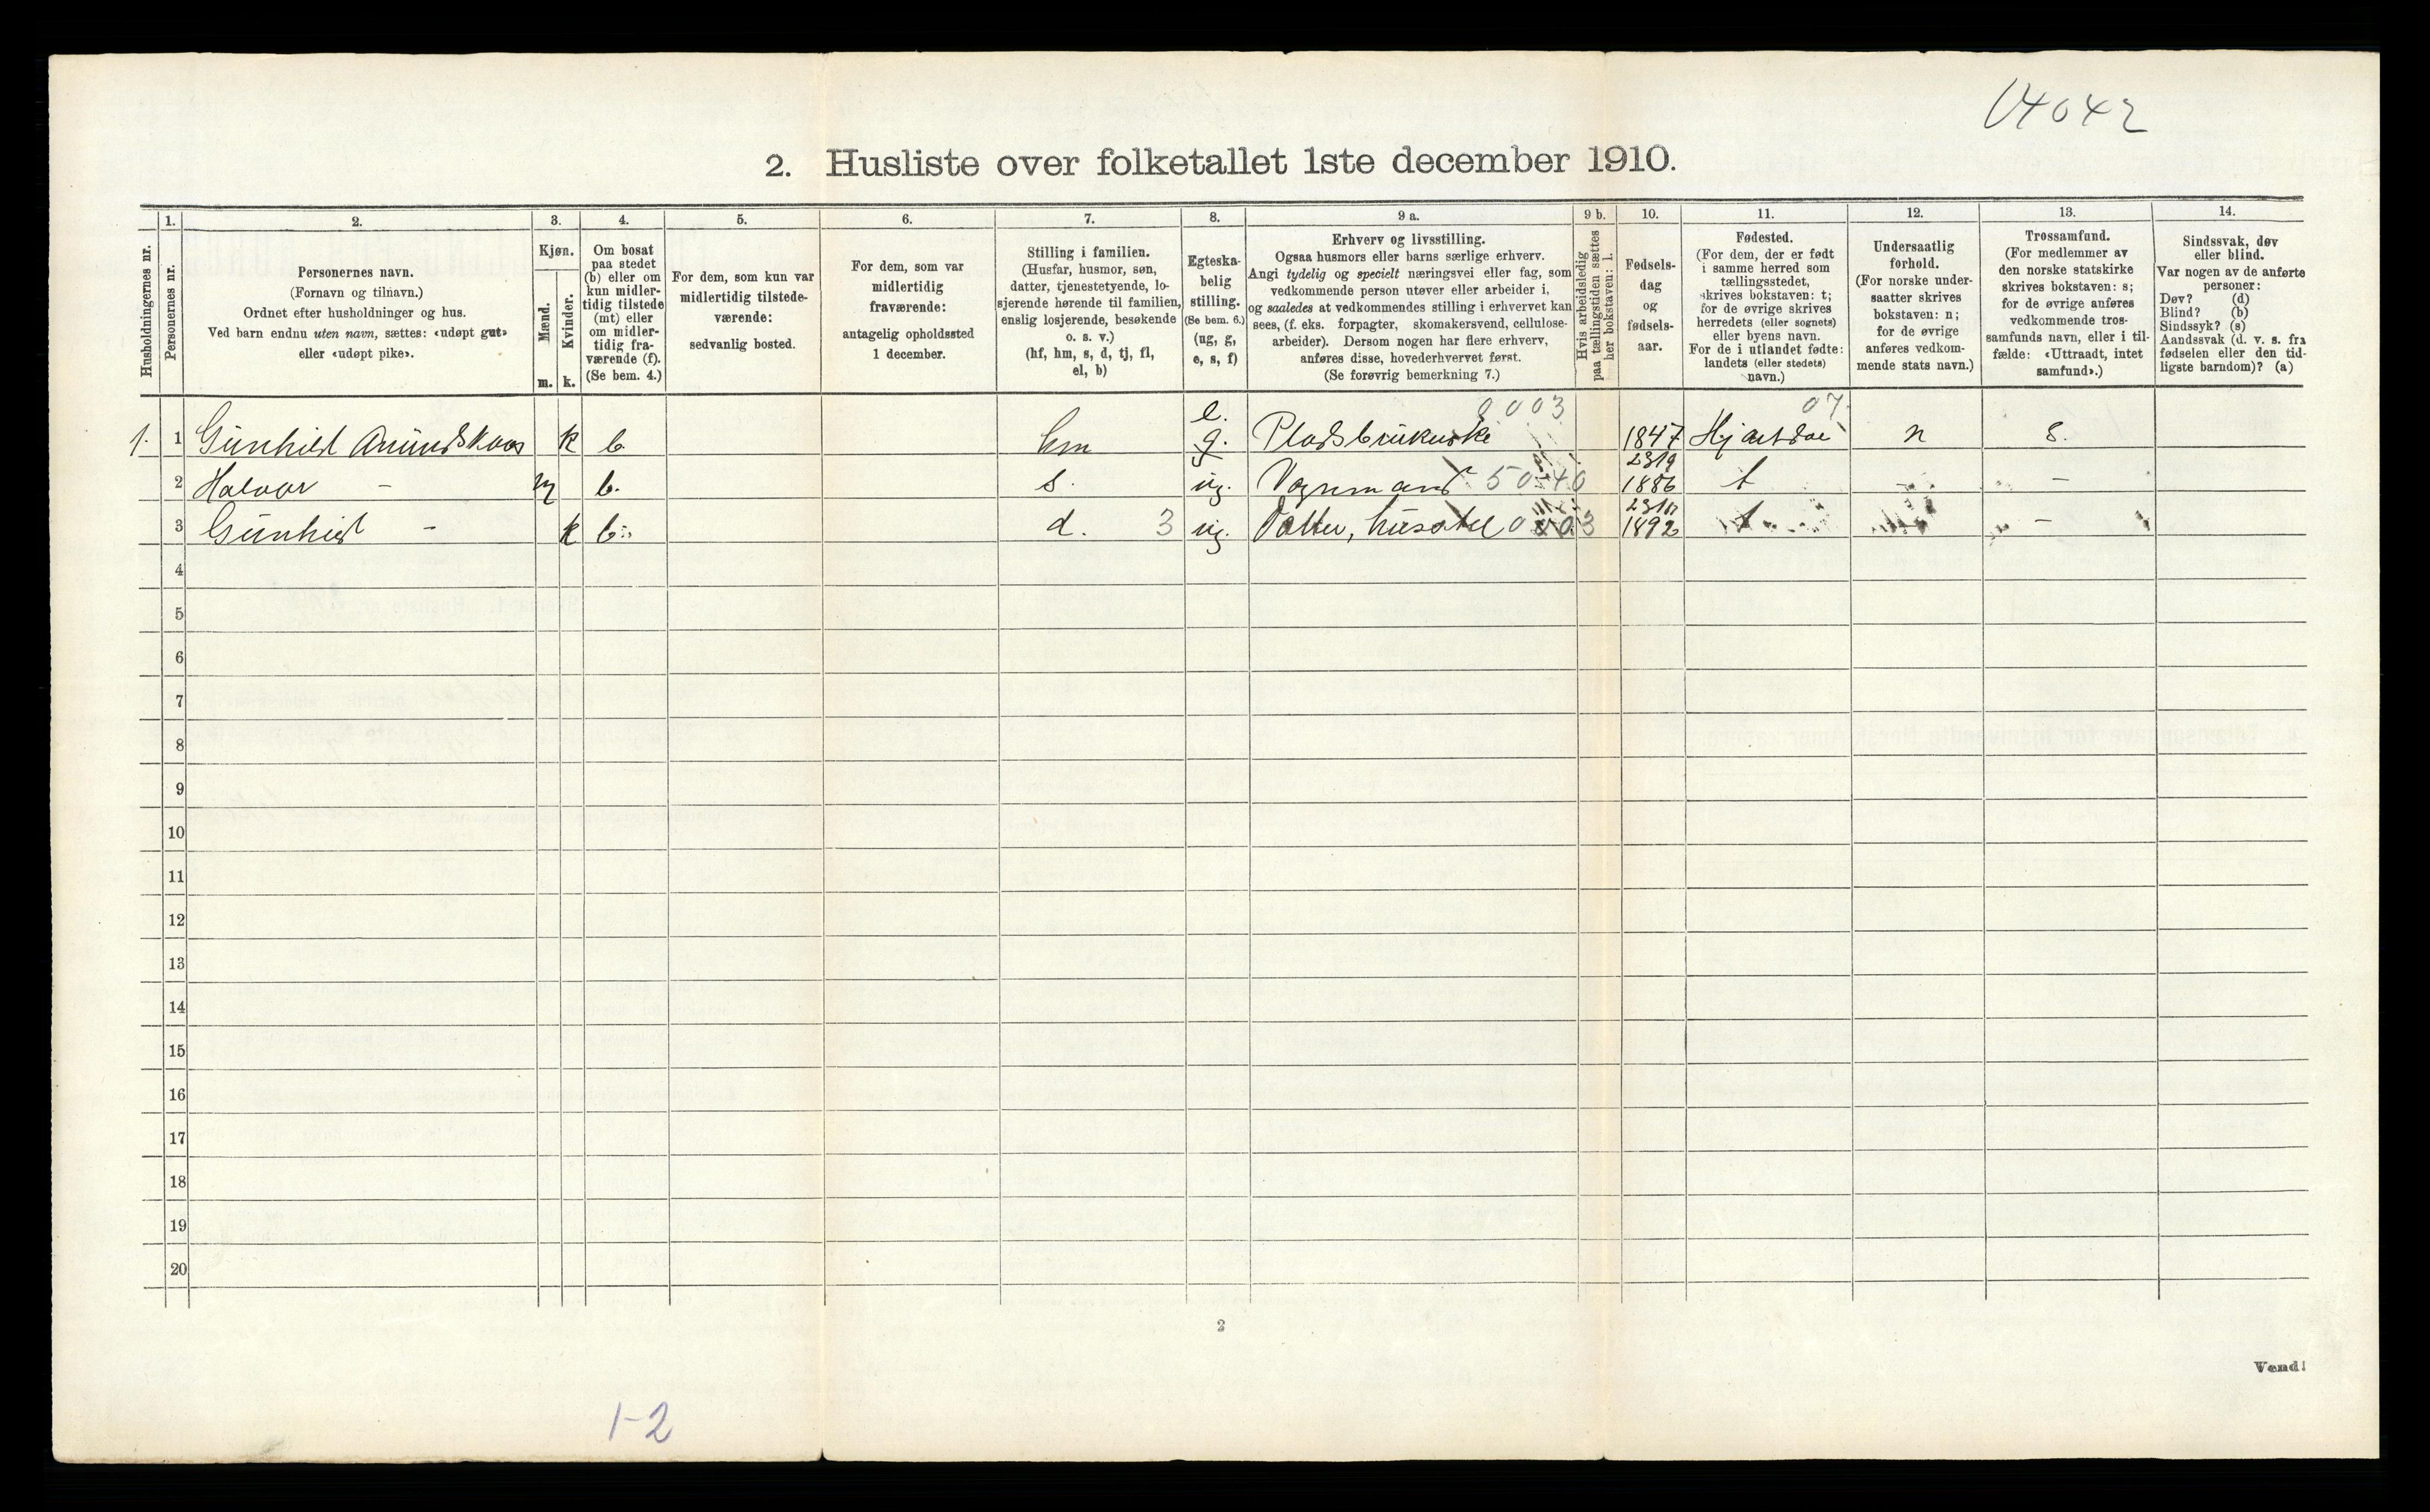 2. Husliste over folketallet 1ste december 1910.
Husholdningernes nr.
1.
Personernes nr.
2.
Personernes navn.
(Fornavn og tilnavn.)
Ordnet efter husholdninger og hus.
Ved barn endnu uten navn, sættes: «udøpt gut»
eller «udøpt pike».
3.
Kjøn.
Mænd.
Kvinder.
m. k.
4.
Om bosat
paa stedet
(b) eller om
kun midler-
tidig tilstede
(mt) eller
om midler-
tidig fra-
værende (f).
(Se bem. 4.)
5.
For dem, som kun var
midlertidig tilstede-
værende:
sedvanlig bosted.
6.
For dem, som var
midlertidig
fraværende:
antagelig opholdssted
1 december.
7.
Stilling i familien.
(Husfar, husmor, søn,
datter, tjenestetyende, lo-
sjerende hørende til familien,
enslig losjerende, besøkende
o. s. v.)
(hf, hm, s, d, tj, fl,
el, b)
8.
Egteska-
belig
stilling.
(Se bem. 6.)
(ug, g,
e, s, f)
9 a.
Erhverv og livsstilling.
Ogsaa husmors eller barns særlige erhverv.
Angi tydelig og specielt næringsvei eller fag, som
vedkommende person utøver eller arbeider i,
og saaledes at vedkommendes stilling i erhvervet kan
sees, (f. eks. forpagter, skomakersvend, cellulose-
arbeider). Dersom nogen har flere erhverv,
anføres disse, hovederhvervet først.
(Se forøvrig bemerkning 7.)
9 b.
Hvis arbeidsledig
paa tællingstiden sættes
her bokstaven: l.
10.
Fødsels-
dag
og
fødsels-
aar.
11.
Fødested.
(For dem, der er født
i samme herred som
tællingsstedet,
skrives bokstaven: t;
for de øvrige skrives
herredets (eller sognets)
eller byens navn.
For de i utlandet fødte:
landets (eller stedets)
navn.)
12.
Undersaatlig
forhold.
(For norske under-
saatter skrives
bokstaven: n;
for de øvrige
anføres vedkom-
mende stats navn.)
13.
Trossamfund.
(For medlemmer av
den norske statskirke
skrives bokstaven: s;
for de øvrige anføres
vedkommende tros-
samfunds navn, eller i til-
fælde: «Uttraadt, intet
samfund».)
14.
Sindssvak, døv
eller blind.
Var nogen av de anførte
personer:
Døv? (d)
Blind? (b)
Sindssyk? (s)
Aandssvak (d. v. s. fra
fødselen eller den tid-
ligste barndom)? (a)
e. 0003 07
1. 1 Gunhild k b hm g. 1847 Hjartdal n s.
2 Halvor - m b. s. ug. Vognmand 1886 t -
3 Gunhild - k b. d. 3 ug. 1892 t -
4
5
6
7
8
9
10
11
12
13
14
15
16
17
18
19
20
2
Vend!
1-2